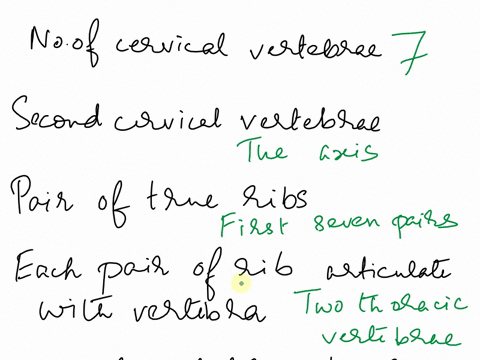 No. of cervical vertebrae 7
Second cervical vertebrae
The axis
Pair of true ribs
First seven pairs
Each pair of rib articulate
with vertebra Two thoracic
vertebrae